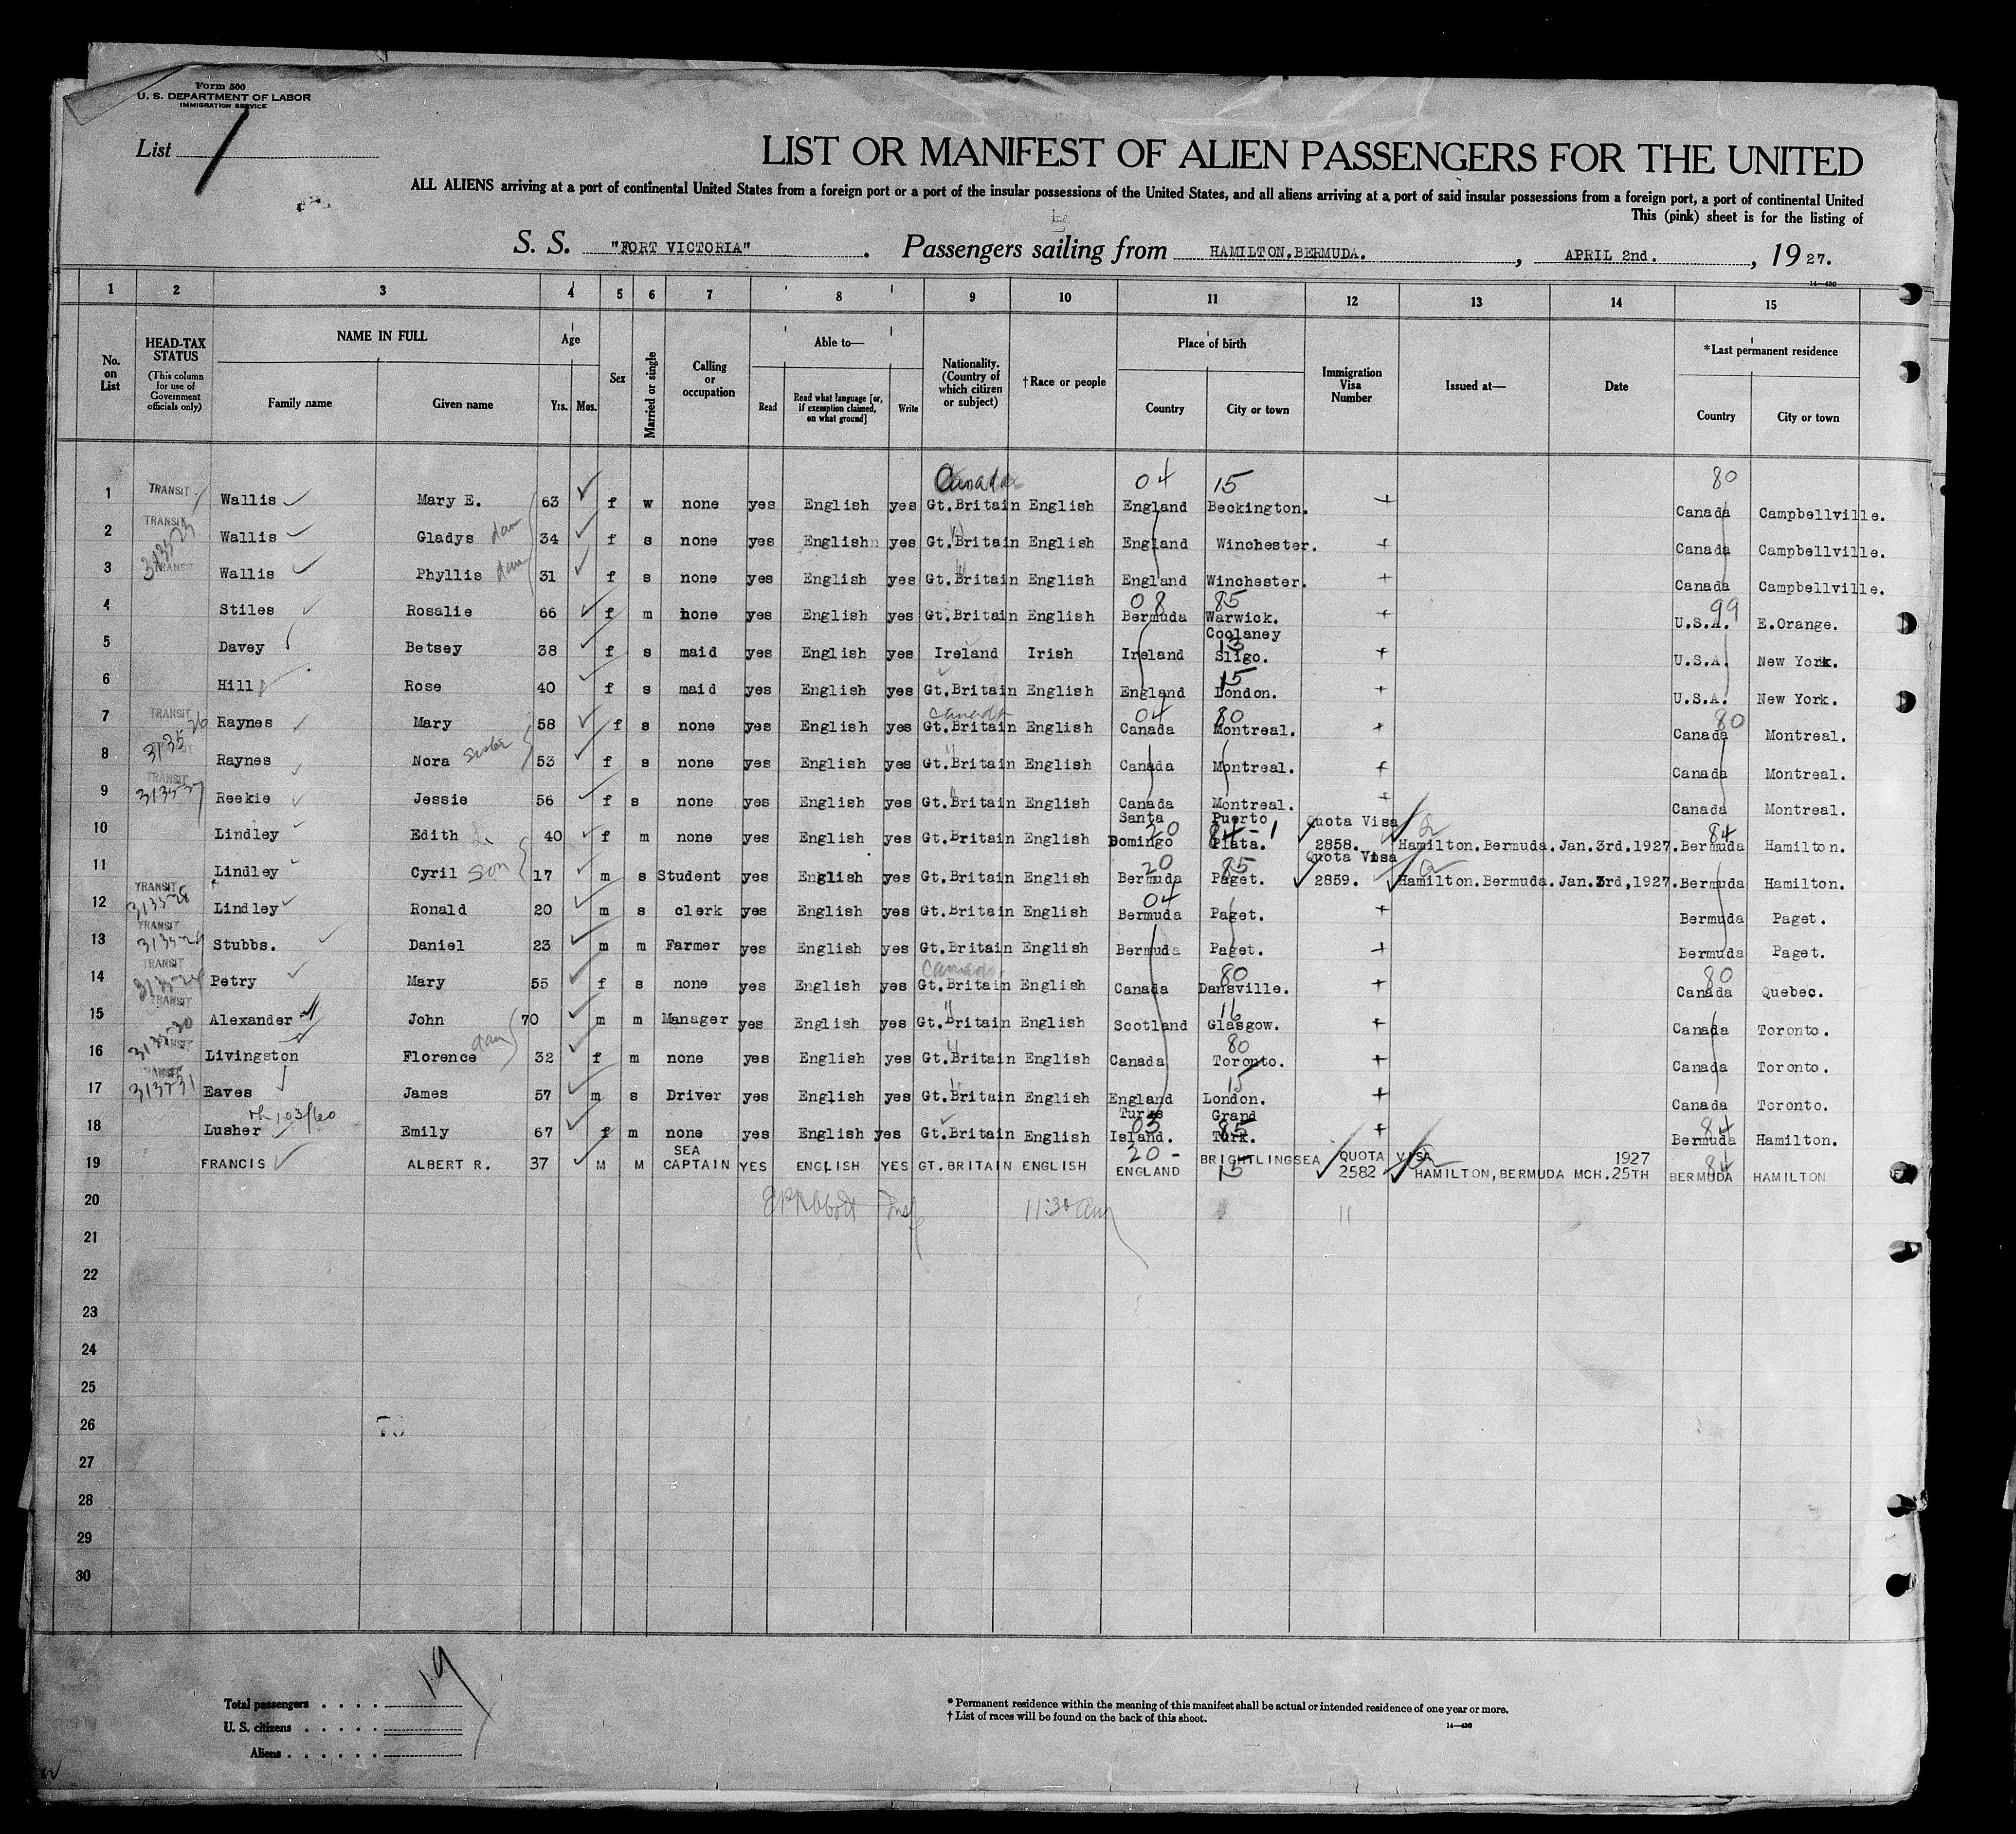 Form 500
U. S. DEPARTMENT OF LABOR
IMMIGRATION SERVICE
List 1
LIST OR MANIFEST OF ALIEN PASSENGERS FOR THE UNITED
ALL ALIENS arriving at a port of continental United States from a foreign port or a port of the insular possessions of the United States, and all aliens arriving at a port of said insular possessions from a foreign port, a port of continental United
This (pink) sheet is for the listing of
S. S. "FORT VICTORIA". Passengers sailing from HAMILTON.BERMUDA., APRIL 2nd., 1927.
14—430
1 2 3 4 5 6 7 8 9 10 11 12 13 14 15
No. on List
HEAD-TAX STATUS (This column for use of Government officials only)
NAME IN FULL Family name Given name
Age Yrs. Mos.
Sex
Married or single
Calling or occupation
Able to— Read Read what language [or, if exemption claimed, on what ground] Write
Nationality. (Country of which citizen or subject)
†Race or people
Place of birth Country City or town
Immigration Visa Number
Issued at—
Date
*Last permanent residence Country City or town
Canada 04 15 80
1 TRANSIT Wallis Mary E. 63 f w none yes English yes Gt.Britain English England Beckington. Canada Campbellville.
2 TRANSIT Wallis Gladys dau 34 f s none yes English yes Gt.Britain English England Winchester. Canada Campbellville.
3 TRANSIT Wallis Phyllis dau 31 f s none yes English yes Gt.Britain English England Winchester. Canada Campbellville.
08 85 99
4 Stiles Rosalie 66 f m none yes English yes Gt.Britain English Bermuda Warwick. U.S.A. E.Orange.
5 Davey Betsey 38 f s maid yes English yes Ireland Irish Ireland Coolaney Sligo. 13 U.S.A. New York.
6 Hill Rose 40 f s maid yes English yes Gt.Britain English England London. 15 U.S.A. New York.
Canada 04 80 80
7 TRANSIT Raynes Mary 58 f s none yes English yes Gt.Britain English Canada Montreal. Canada Montreal.
8 Raynes Nora Sister 53 f s none yes English yes Gt.Britain English Canada Montreal. Canada Montreal.
9 TRANSIT Reekie Jessie 56 f s none yes English yes Gt.Britain English Canada Montreal. Canada Montreal.
10 Lindley Edith 40 f m none yes English yes Gt.Britain English Santa Domingo 20 Puerto Plata. 84-1 Quota Visa 2858. Hamilton.Bermuda. Jan.3rd.1927. Bermuda 84 Hamilton.
11 Lindley Cyril Son 17 m s Student yes English yes Gt.Britain English Bermuda 20 Paget. 85 Quota Visa 2859. Hamilton.Bermuda. Jan.3rd,1927. Bermuda Hamilton.
12 TRANSIT 3135-28 Lindley Ronald 20 m s clerk yes English yes Gt.Britain English Bermuda 04 Paget. Bermuda Paget.
13 TRANSIT Stubbs. Daniel 23 m m Farmer yes English yes Gt.Britain English Bermuda Paget. Bermuda Paget.
14 TRANSIT Petry Mary 55 f s none yes English yes Canada Gt.Britain English Canada Dansville. 80 Canada 80 Quebec.
15 TRANSIT 3135-30 Alexander John 70 m m Manager yes English yes Gt.Britain English Scotland Glasgow. 16 Canada Toronto.
16 TRANSIT Livingston Florence dau 32 f m none yes English yes Gt.Britain English Canada Toronto. 80 Canada Toronto.
17 TRANSIT 313531 Eaves James 57 m s Driver yes English yes Gt.Britain English England London. 15 Canada Toronto.
18 Lusher Emily 67 f m none yes English yes Gt.Britain English Turks Island. 03 Grand Turk. 85 Bermuda 84 Hamilton.
19 FRANCIS ALBERT R. 37 M M SEA CAPTAIN YES ENGLISH YES GT.BRITAIN ENGLISH 20- ENGLAND BRIGHTLINGSEA 15 QUOTA VISA 2582 HAMILTON,BERMUDA MCH.25TH 1927 BERMUDA 84 HAMILTON
20 11:30 am
21
22
23
24
25
26
27
28
29
30
Total passengers . . . . 19
U. S. citizens . . . . .
Aliens . . . . . .
* Permanent residence within the meaning of this manifest shall be actual or intended residence of one year or more.
† List of races will be found on the back of this sheet.
14—430